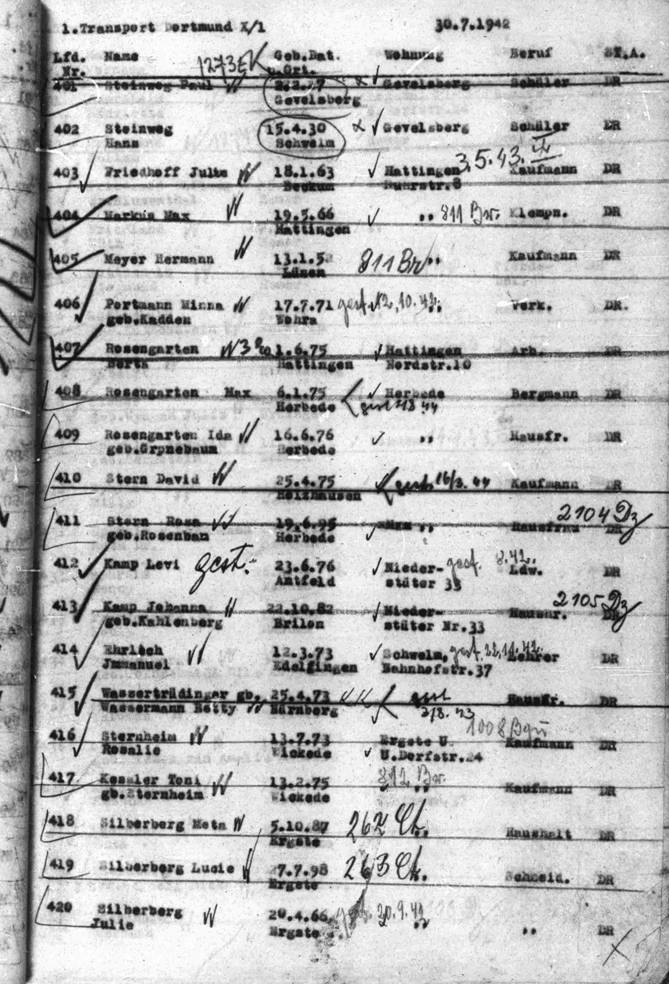 1.Transport Dortmund X/1 30.7.1942
Lfd. Name Geb.Dat. Wohnung Beruf ST.A.
Nr. u.Ort.
401 Steinweg Paul Gevelsberg Schüler DR
Gevelsberg
402 Steinweg 15.4.30 Gevelsberg Schüler DR
Hans Schwelm
403 Friedhoff Julie 18.1.63 Hattingen 3.5.43. Kaufmann DR
Beckum Ruhrstr.8
404 Markus Max 19.5.66 " 811 Br. Klempn. DR
Hattingen
405 Meyer Hermann 13.1.5 811 Br " Kaufmann DR
Lünen
406 Portmann Minna 17.7.71 gest. 10.42. " Verk. DR.
geb.Kadden Wohra
407 Rosengarten 1.6.75 Hattingen Arb. DR
Berta Hattingen Nordstr.10
408 Rosengarten Max 6.1.75 Herbede Bergmann DR
Herbede
409 Rosengarten Ida 16.6.76 " Hausfr. DR
geb.Grpnebaum Herbede
410 Stern David 25.4.75 gest. 16/3. 44 Kaufmann DR
Holzhausen
411 Stern Rosa 19.6.95 " Hausfrau 2104 Dz DR
geb.Rosenban Herbede
412 Kamp Levi gest. 23.6.76 Nieder- gest. 8.42. Ldw. DR
Antfeld stüter 33
413 Kamp Johanna 22.10.82 Nieder- 2105 Dz DR
geb.Kahlenberg Brilon stüter Nr.33
414 Ehrlich 12.3.73 Schwelm, gest. Lehrer DR
Jmmanuel Edelfingen Bahnhofstr.37
415 Wassertrüdinger gb. 25.4.73 gest Hausfr. DR
Wassermann Betty Nürnberg 2/8. 43
416 Sternheim 13.7.73 Ergste U. Kaufmann DR
Rosalie Wickede U.Dorfstr.24
417 Kessler Toni 13.2.75 812 Br. Kaufmann DR
gb.Sternheim Wickede
418 Silberberg Meta 5.10.87 262 Haushalt DR
Ergste
419 Silberberg Lucie 7.7.98 263 Schneid. DR
Ergste
420 Silberberg 20.4.66 " DR
Julie Ergste "